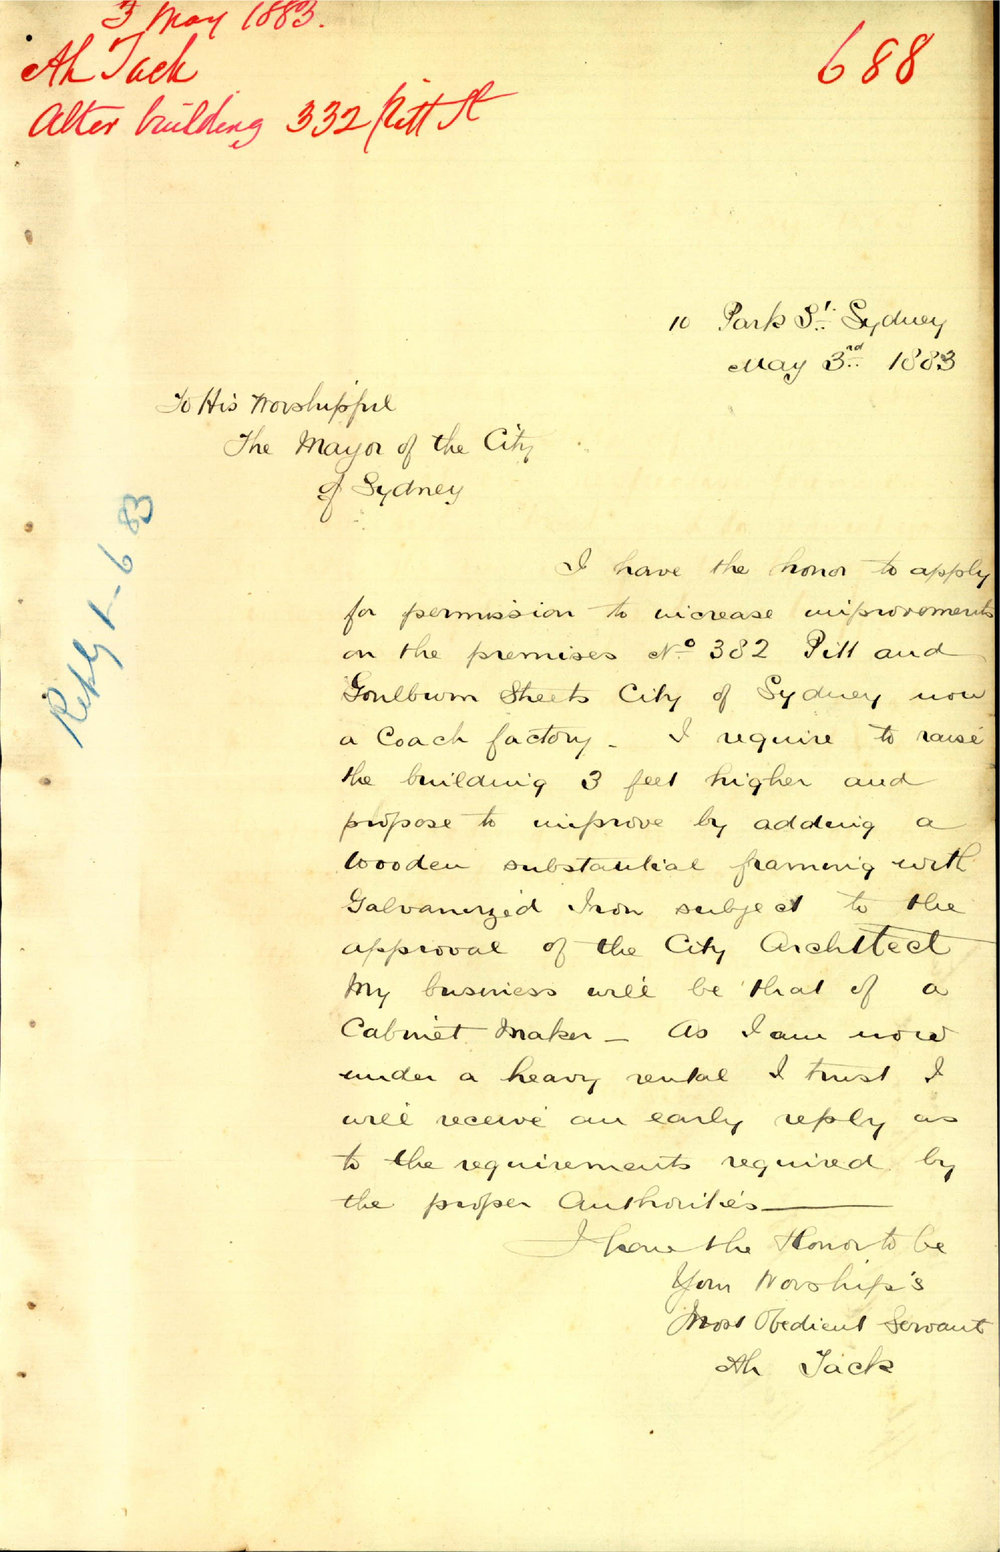 3 May 1883.
Ah Jack
Alter building 332 Pitt St
688
10 Park St. Sydney
May 3rd 1883
To His Worshipful
The Mayor of the City
of Sydney
Reply 1-6 83
I have the honor to apply
for permission to increase improvements
on the premises No 382 Pitt and
Goulburn Streets City of Sydney now
a Coach factory - I require to raise
the building 3 feet higher and
propose to improve by adding a
wooden substantial framing with
Galvanized Iron subject to the
approval of the City Architect
My business will be that of a
Cabinet Maker - As I am now
under a heavy rental I trust I
will receive an early reply as
to the requirements required by
the proper Authorities
I have the Honor to be
Your Worship's
Most Obedient Servant
Ah Jack